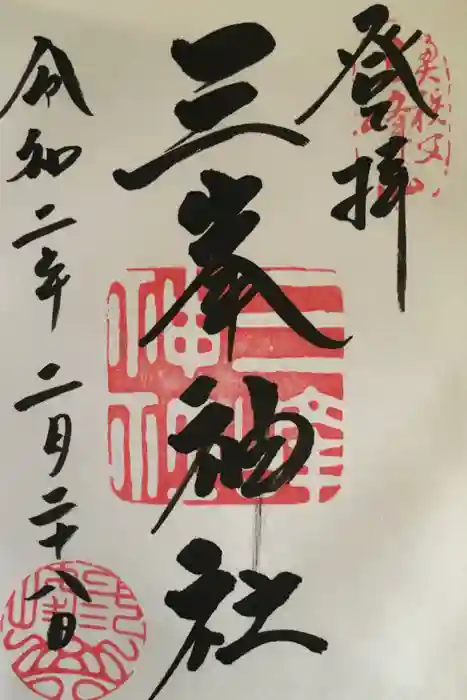 登拝
三峯神社
令和二年二月二十八日
奥秩父
三峰神社